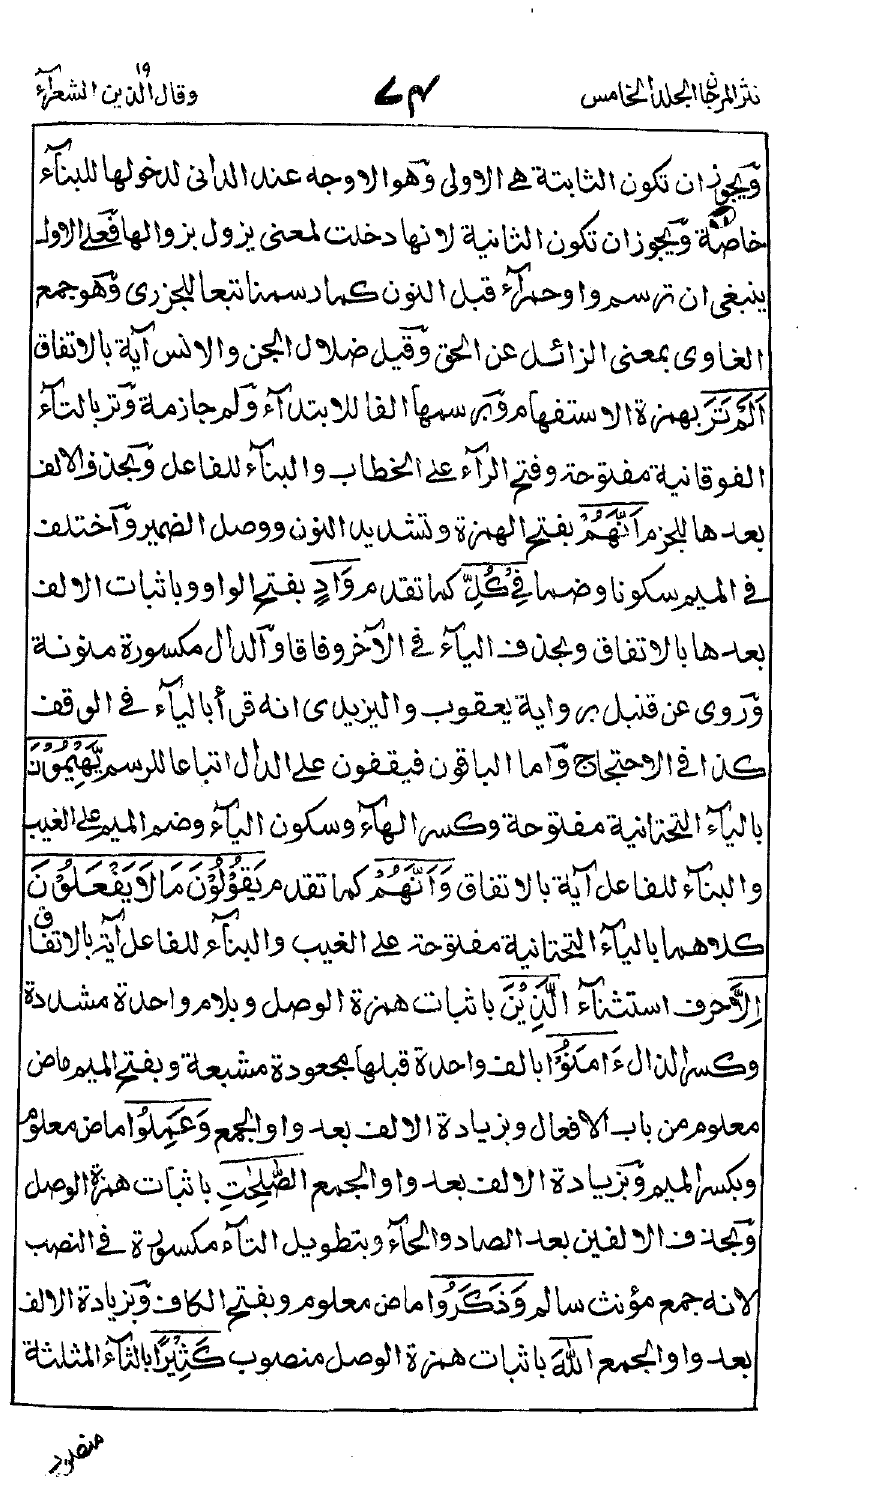 نثر المرجان المجلد الخامس
٧٤
وقال الذين ١٩ الشعرآء
ويجوز ان تكون الثابتة هى الاولى وهو الاوجه عند الدانى لدخولها للبنآء
خاصة ويجوز ان تكون الثانية لانها دخلت لمعنى يزول بزوالها فعلى الاول
ينبغى ان ترسم واو حمرآء قبل النون كما رسمنا تبعا للجزرى وهو جمع
الغاوى بمعنى الزائل عن الحق وقيل ضلال الجن والانس آية بالاتفاق
اَلَمْ تَرَ بهمزة الاستفهام وبرسمها الفا للابتدآء ولم جازمة وتر بالتآء
الفوقانية مفتوحة وفتح الرآء على الخطاب والبنآء للفاعل وبحذف الالف
بعدها للجزم اَنَّهُمْ بفتح الهمزة وتشديد النون ووصل الضمير واختلف
فى الميم سكونا وضما فِىْ كُلِّ كما تقدم وَادٍ بفتح الواو وباثبات الالف
بعدها بالاتفاق وبحذف اليآء فى الآخر وفاقا والدال مكسورة منونة
وروى عن قنبل برواية يعقوب واليزيدى انه قرأ باليآء فى الوقف
كذا فى الاحتجاج واما الباقون فيقفون على الدال اتباعا للرسم يَهِيْمُوْنَ
باليآء التحتانية مفتوحة وكسر الهآء وسكون اليآء وضم الميم على الغيب
والبنآء للفاعل آية بالاتفاق وَاَنَّهُمْ كما تقدم يَقُوْلُوْنَ مَا لَا يَفْعَلُوْنَ
كلاهما باليآء التحتانية مفتوحة على الغيب والبنآء للفاعل آية بالاتفاق
اِلَّا حرف استثنآء الَّذِيْنَ باثبات همزة الوصل وبلام واحدة مشددة
وكسر الذال ءَامَنُوْا بالف واحدة قبلها مجعودة مشبعة وبفتح الميم ماض
معلوم من باب الافعال وبزيادة الالف بعد واو الجمع وَعَمِلُوا ماض معلوم
وبكسر الميم وبزيادة الالف بعد واو الجمع الصّٰلِحٰتِ باثبات همزة الوصل
وبحذف الالفين بعد الصاد والحآء وبتطويل التآء مكسورة فى النصب
لانه جمع مؤنث سالم وَذَكَرُوا ماض معلوم وبفتح الكاف وبزيادة الالف
بعد واو الجمع اللّٰهَ باثبات همزة الوصل منصوب كَثِيْرًا بالثآء المثلثة